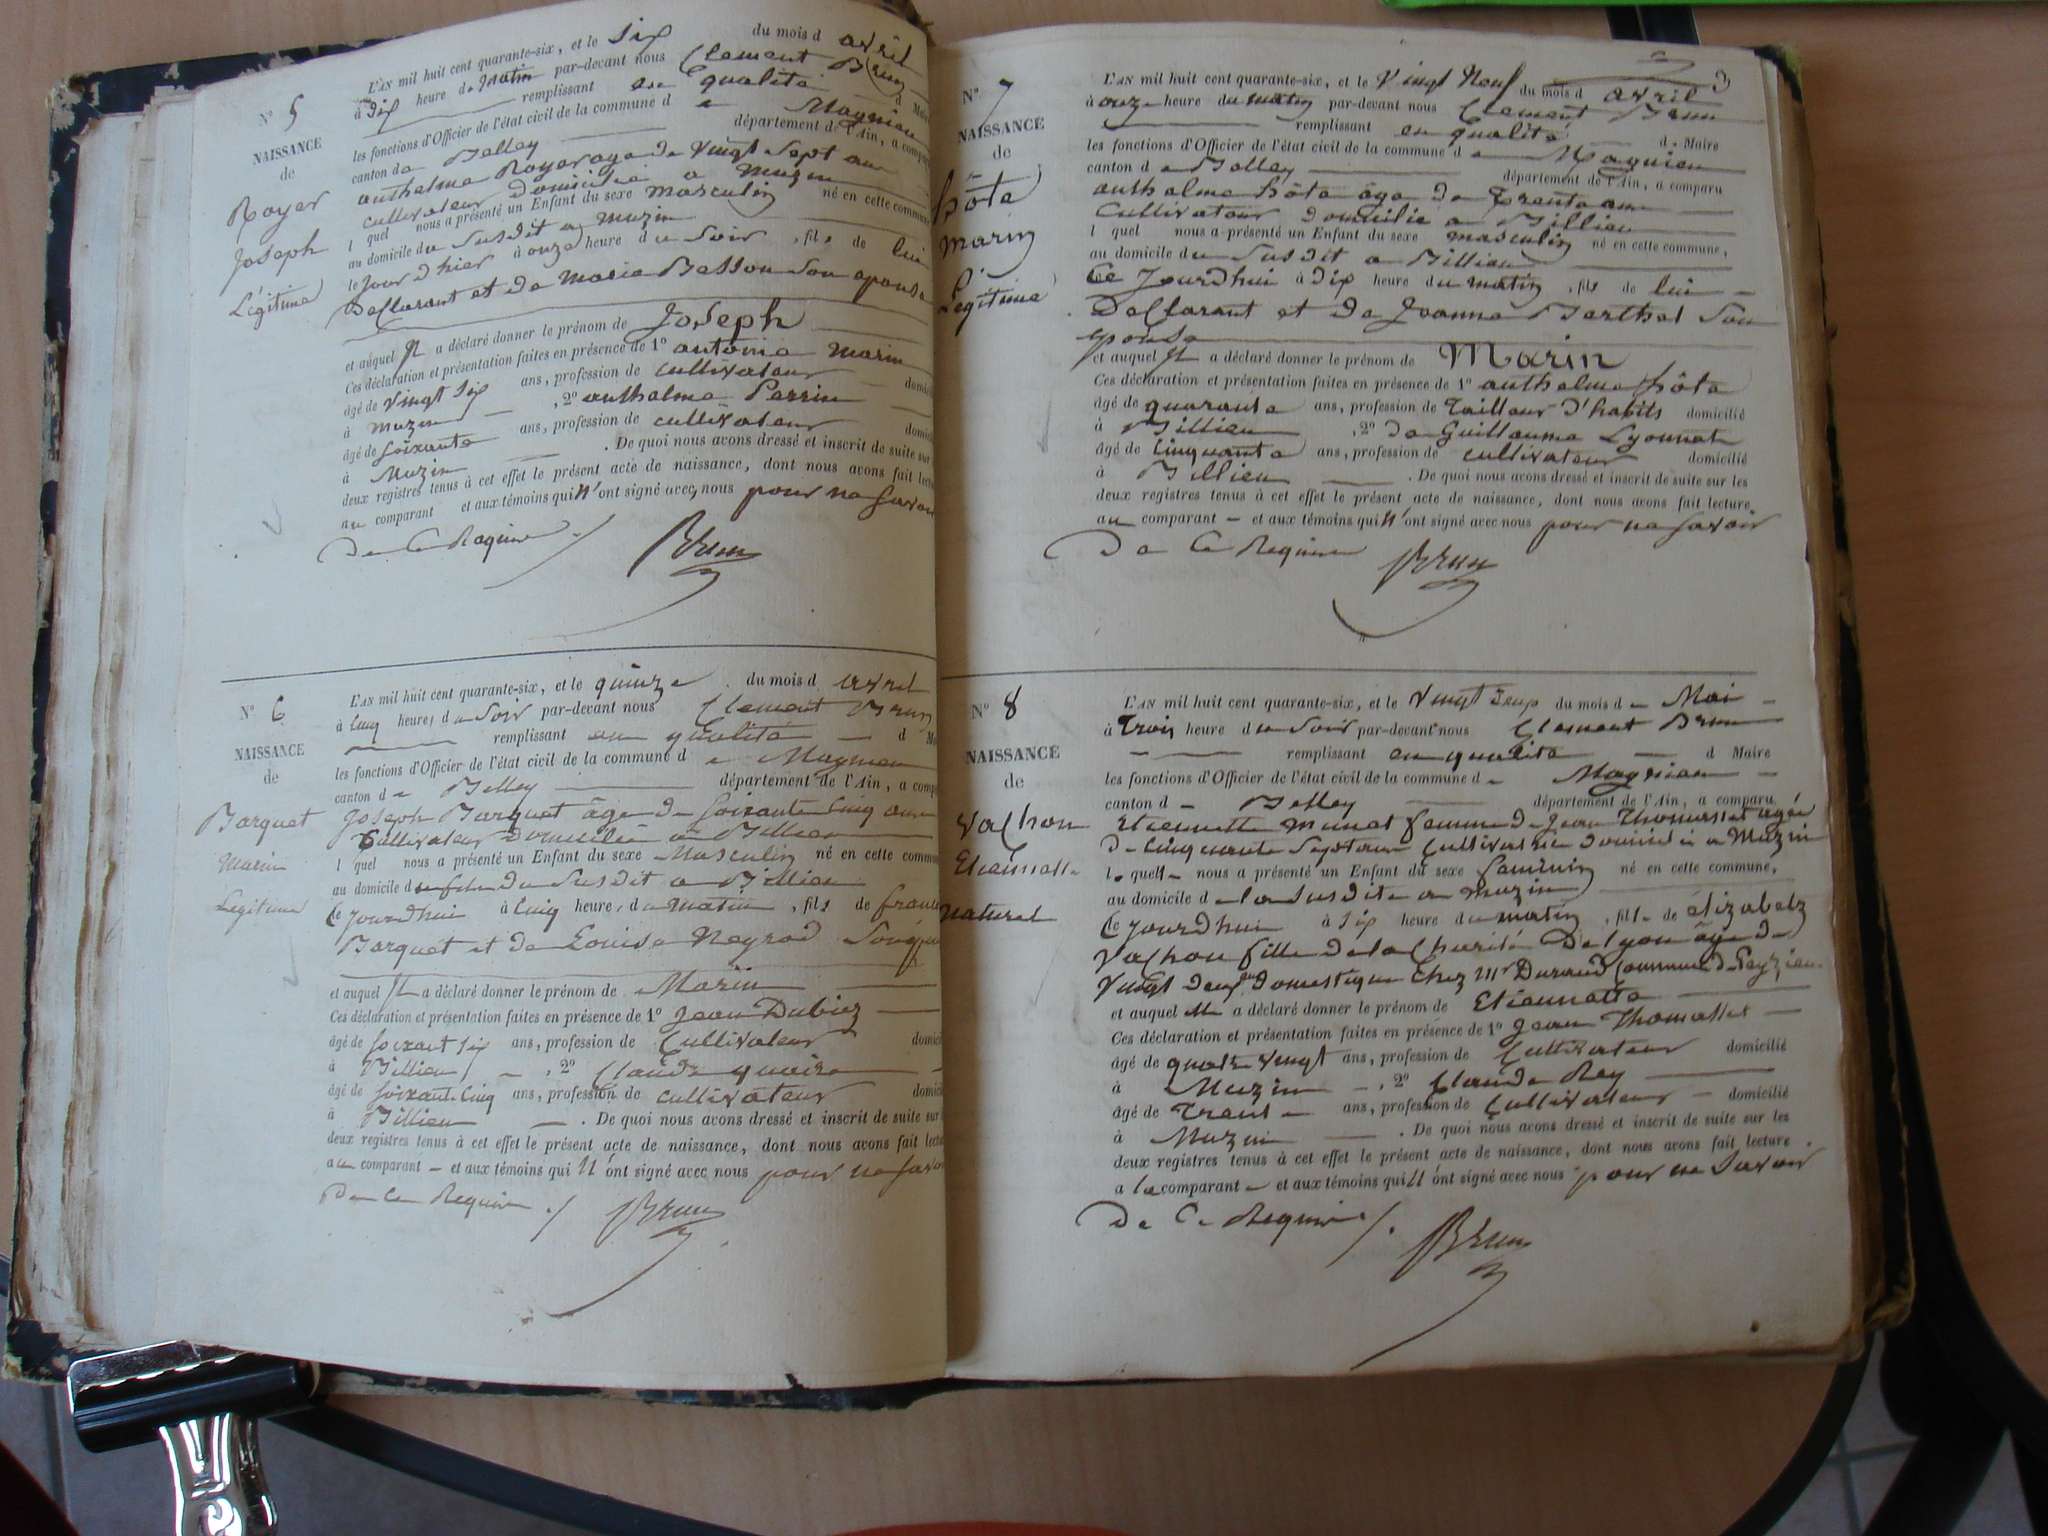 N° 5
NAISSANCE
de
Royer
Joseph
Légitime
L'AN mil huit cent quarante-six, et le six du mois d avril
à dix heure du matin par-devant nous Clement Brun
remplissant en qualité d Maire
les fonctions d'Officier de l'état civil de la commune d e Magnieu
canton de Belley département de l'Ain, a comparu
anthelme Royer age de vingt sept ans
cultivateur domicilié a Muzin
l quel nous a présenté un Enfant du sexe masculin né en cette commune
au domicile du susdit a Muzin
le jour d hier à onze heure du soir , fils de lui
Declarant et de Marie Besson son epouse
et auquel Il a déclaré donner le prénom de Joseph
Ces déclaration et présentation faites en présence de 1° antoine Marin
âgé de vingt six ans, profession de cultivateur domici
à Muzin , 2° anthelme Perrin
âgé de soixante ans, profession de cultivateur domici
à Muzin . De quoi nous avons dressé et inscrit de suite sur
deux registres tenus à cet effet le présent acte de naissance, dont nous avons fait lectu
au comparant et aux témoins qui n'ont signé avec nous pour ne savoir
De Ce Requis ./
Brun
N° 6
NAISSANCE
de
Barquet
Marin
Legitime
L'AN mil huit cent quarante-six, et le quinze du mois d avril
à cinq heures du soir par-devant nous Clement Brun
remplissant en qualité d M
les fonctions d'Officier de l'état civil de la commune d e Magnieu
canton d e Belley département de l'Ain, a comp
Joseph Barquet âge de soixante cinq ans
Cultivateur Domicilié a Billieu
l quel nous a présenté un Enfant du sexe Masculin né en cette commu
au domicile du susdit a Billieu
Ce jourdhui à cinq heure, du matin , fils de
Barquet et de Louise Neyrod
et auquel Il a déclaré donner le prénom de Marin
Ces déclaration et présentation faites en présence de 1° Jean Dubiez
âgé de soixant six ans, profession de Cultivateur domici
à Billieu , 2° Claude
âgé de soixant cinq ans, profession de cultivateur domici
à Billieu . De quoi nous avons dressé et inscrit de suite sur
deux registres tenus à cet effet le présent acte de naissance, dont nous avons fait lectu
au comparant et aux témoins qui n'ont signé avec nous pour ne savoir
De Ce Requis ./
Brun
3
N° 7
NAISSANCE
de
hôte
Marin
Légitime
L'AN mil huit cent quarante-six, et le Vingt Neuf du mois d avril
à onze heure du matin par-devant nous Clement Brun
remplissant en qualité d e Maire
les fonctions d'Officier de l'état civil de la commune d e Magnieu
canton d e Belley département de l'Ain, a comparu
anthelme hôte âge de Trente ans
Cultivateur domicilié a Billieu
l quel nous a présenté un Enfant du sexe masculin né en cette commune,
au domicile du susdit a Billieu
Ce Jourdhui à dix heure du matin , fils de lui
Declarant et de Jeanne Berthet son
epouse
et auquel Il a déclaré donner le prénom de Marin
Ces déclaration et présentation faites en présence de 1° anthelme hôte
âgé de quarante ans, profession de Tailleur d'habits domicilié
à Billieu , 2° de Guillaume Lyonnet
âgé de Cinquante ans, profession de cultivateur domicilié
à Billieu . De quoi nous avons dressé et inscrit de suite sur les
deux registres tenus à cet effet le présent acte de naissance, dont nous avons fait lecture
au comparant et aux témoins qui n'ont signé avec nous pour ne savoir
De Ce Requis
Brun
N° 8
NAISSANCE
de
Vachon
Etiennette
naturel
L'AN mil huit cent quarante-six, et le vingt du mois d e Mai
à Trois heure du soir par-devant nous Clement Brun
remplissant en qualité d Maire
les fonctions d'Officier de l'état civil de la commune d e Magnieu
canton d e Belley département de l'Ain, a comparu
Etiennette femme de Jean Thomasset agée
de cinquante sept ans Cultivatrice domiciliée a Muzin
l e quelle nous a présenté un Enfant du sexe feminin né en cette commune,
au domicile d e la susdite a Muzin
Ce jourdhui à six heure du matin , fille de élizabetz
Vachon fille de la Charité De lyon âge de
vingt deux ans domestique chez Mr Durand Commune de Peyzieu
et auquel elle a déclaré donner le prénom de Etiennette
Ces déclaration et présentation faites en présence de 1° Jean Thomasset
âgé de quatre vingt ans, profession de Cultivateur domicilié
à Muzin , 2° Claude Rey
âgé de Trente ans, profession de Cultivateur domicilié
à Muzin . De quoi nous avons dressé et inscrit de suite sur les
deux registres tenus à cet effet le présent acte de naissance, dont nous avons fait lecture
a la comparante et aux témoins qui n'ont signé avec nous pour ne savoir
De Ce Requis ./.
Brun